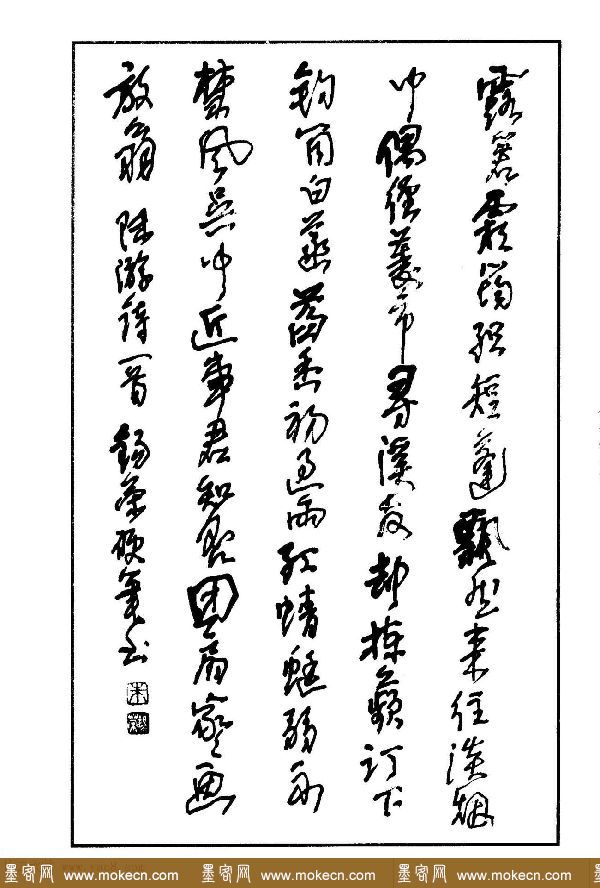 露箬霜筠织短篷飘然来往淡烟
中偶经菱市寻溪友却拣蘋汀下
钓筒白菡萏香初过雨红蜻蜓弱不
禁风吴中近事君知否团扇家家画
放翁 陆游诗一首 锡荣硬笔书
墨客网 www.mokecn.com 墨客网 www.mokecn.com 墨客网 www.mokecn.com